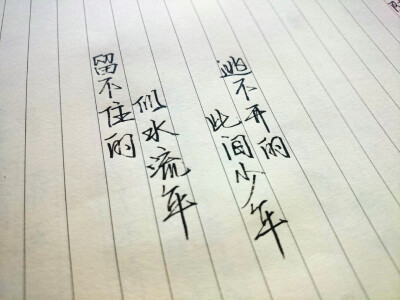 逃不开的
此间少年
留不住的
似水流年